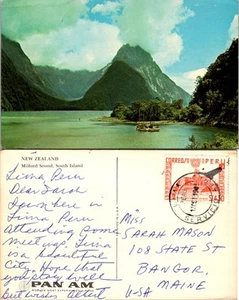 NEW ZEALAND
Milford Sound, South Island
Lima Peru
Dear Sarah
I am here in
Lima Peru
Attending some
Meetings, Lima
is a beautiful
City. Hope that
you stay well
Best wishes Albert
PAN AM
CORREOS PERU
Miss
SARAH MASON
108 STATE ST
BANGOR,
MAINE
USA